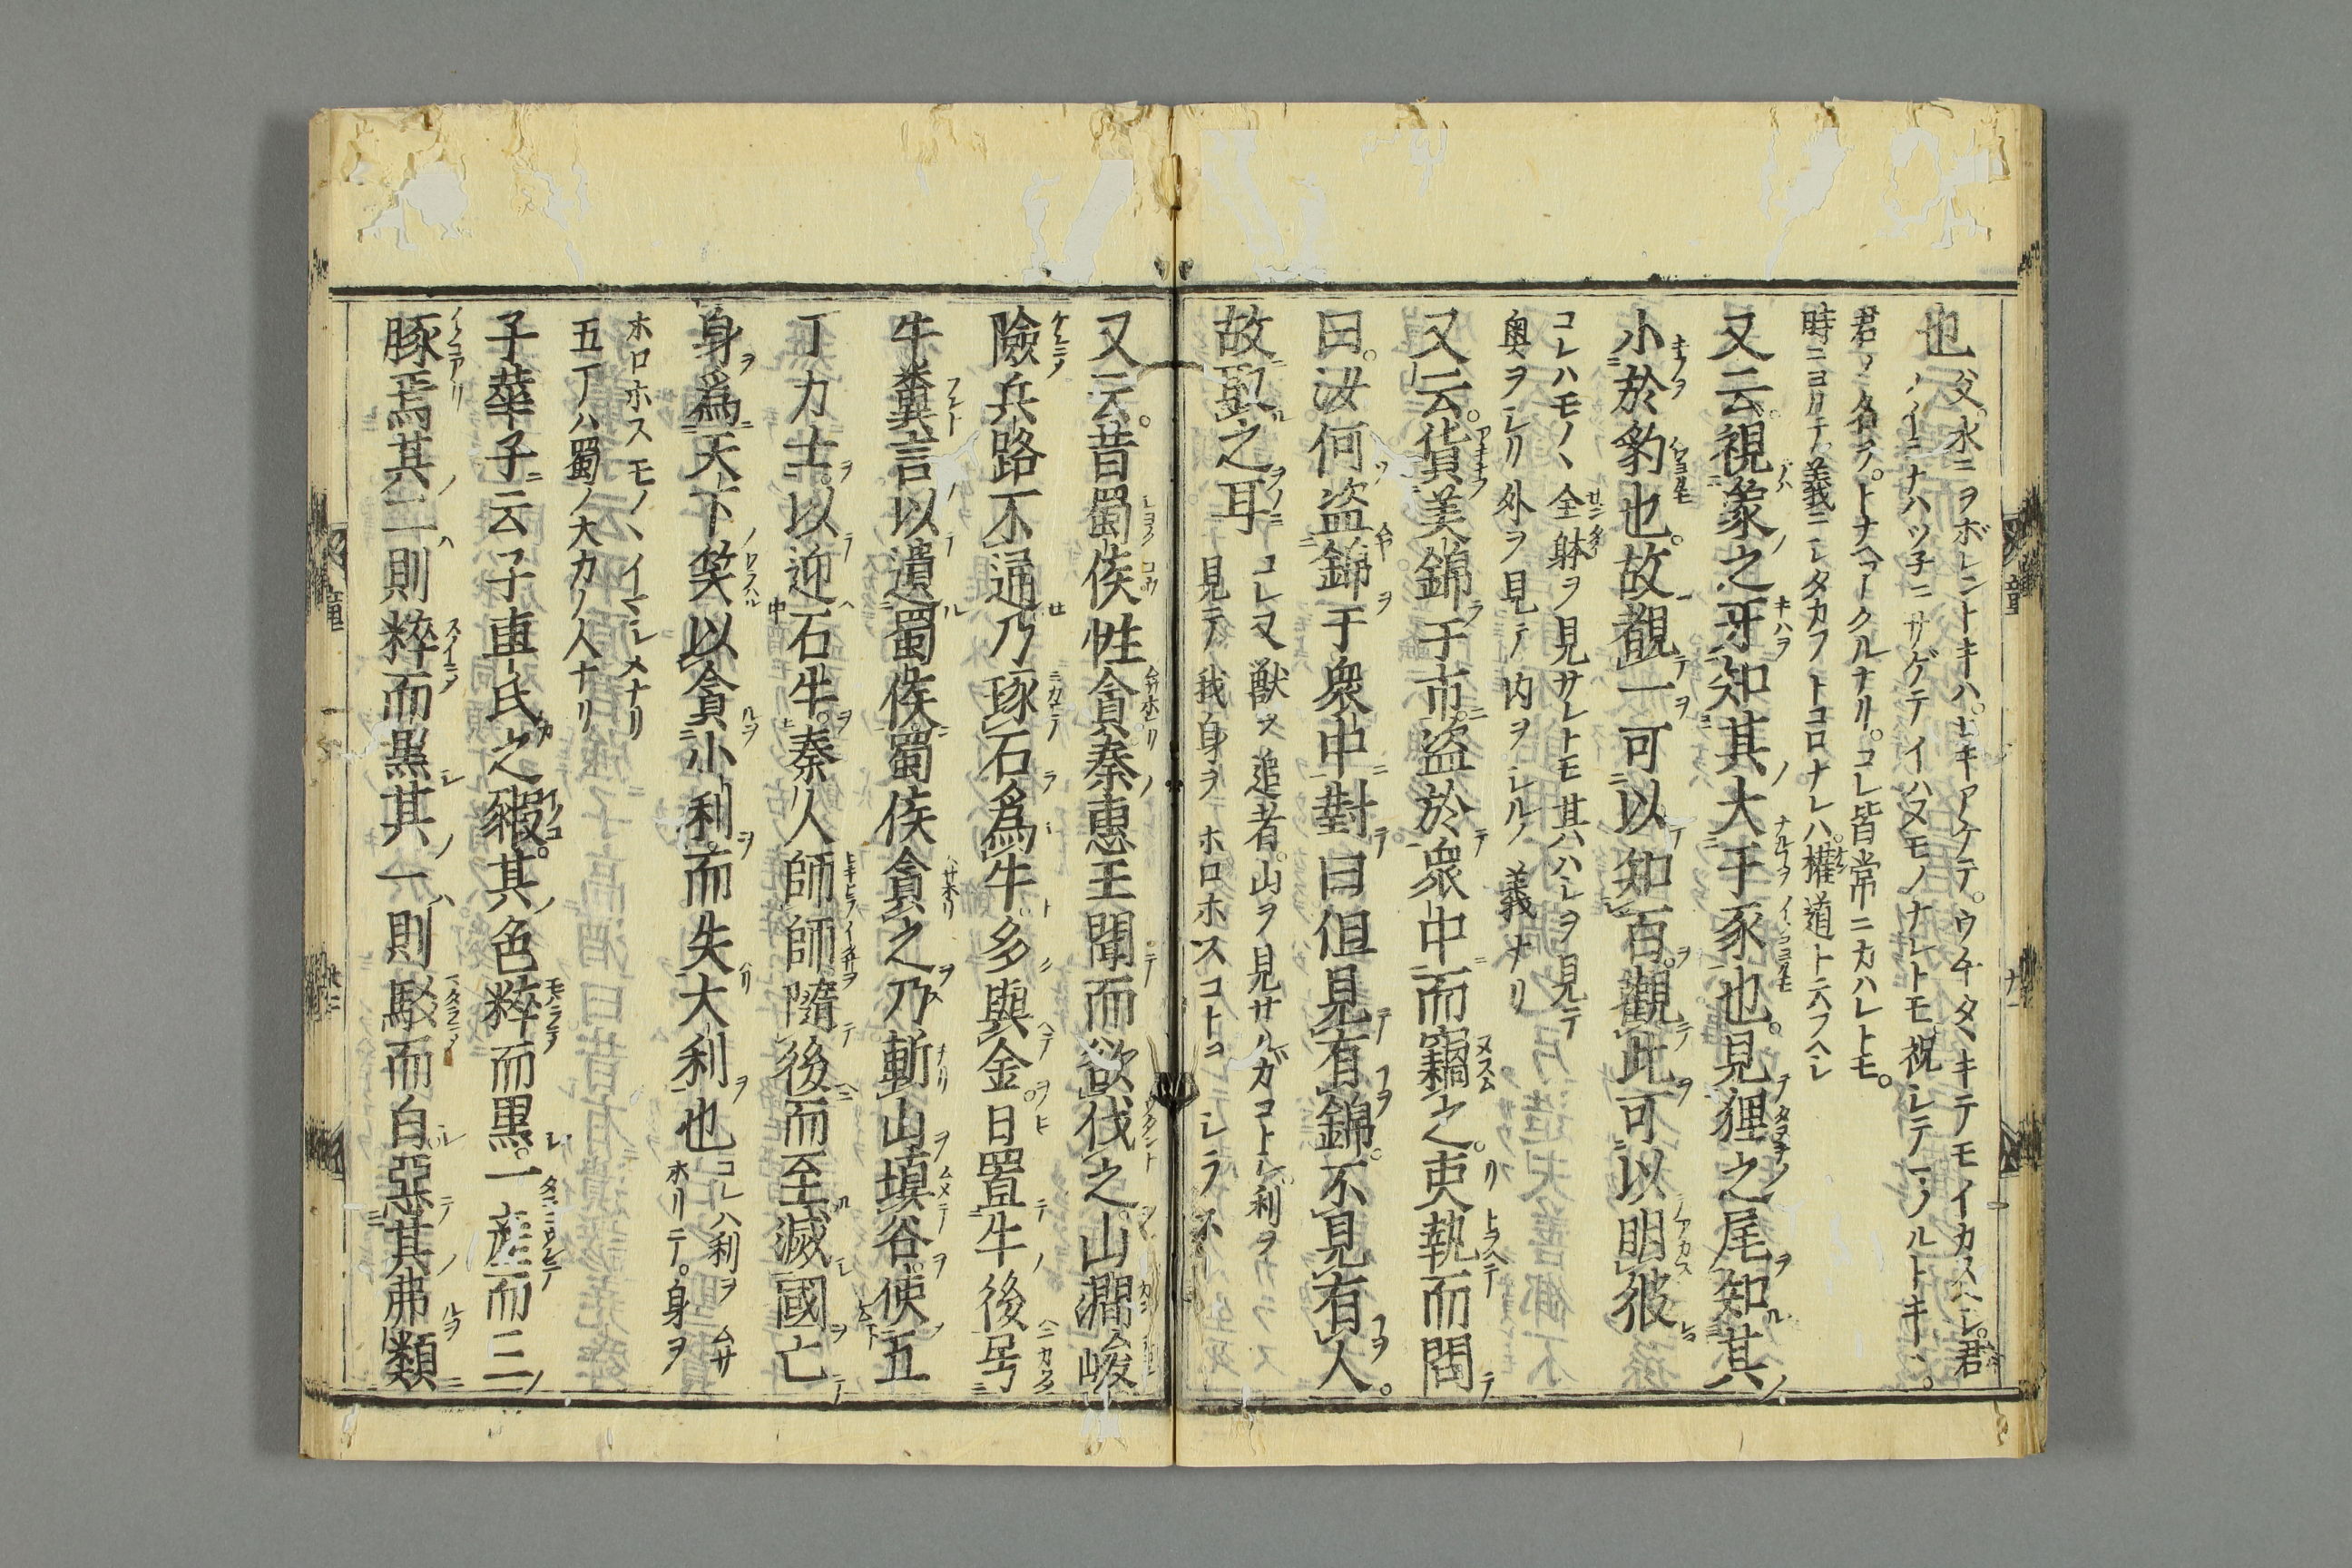 也 父水ニヲボレントキハ。ヒキアケテ。ウチタヽキテモイカスヘシ。君
ノイミナハツ子ニサゲテイハヌモノナレトモ祝シテマツルトキハ。
君ノミ名ヲ。トナヘテークルナリ。コレ皆常ニカハレトモ。
時ニヨリテ義ニシタカフトコロナレハ。権道ト云フヘシ
又云。視象之牙知其大于豕也。見狸之尾知其
小於豹也。故覩一可以知百。觀此可以明彼
コレハモノヽ全躰ヲ見サレトモ其ハハシヲ見テ
奥ヲシリ外ヲ見テ内ヲシルノ義ナリ
又云。貨美錦于市。盗於衆中而竊之。吏執而問
曰。汝何盗錦于衆中對曰但見有錦。不見有人。
故取之耳
コレ又獣ヲ追者。山ヲ見サルガコトシ利ヲ
見テ我身ヲホロホスコトヲシラス
又云。昔蜀侯性貪秦惠王聞而欲伐之。山澗峻
險兵路不通乃琢石爲牛。多與金日置牛後号
牛糞言以遺蜀侯蜀侯貪之乃斬山填谷。使五
丁力士。以迎石牛。秦人師師隨後而至滅國亡
身爲天下笑以貪小利而失大利也
コレハ利ヲムサ
ホリニテ。身ヲ
ホロホスモノヽイマシメナリ
五丁ハ蜀ノ大力ノ人ナリ
子華子云子車氏之豭其色粹而黒。一産而三
豚焉其二則粹而黒其一則駁而白惡其弗類
童
童